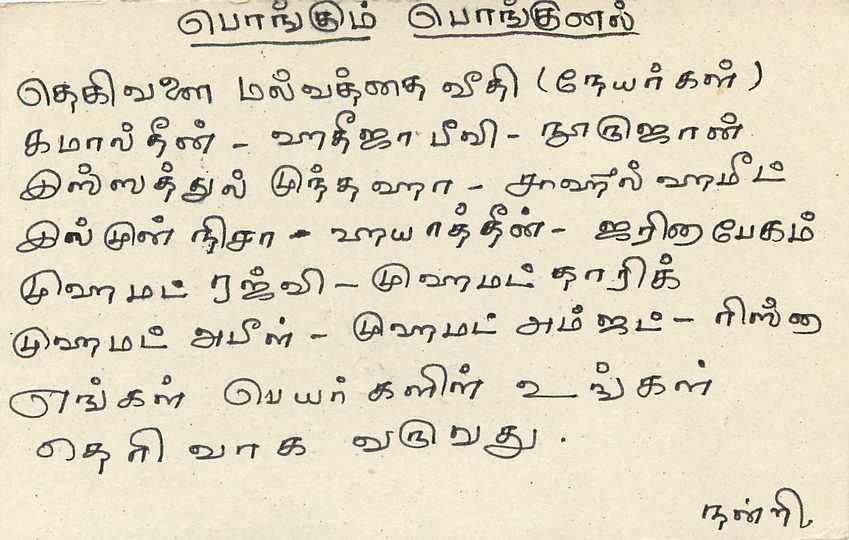 பொங்கும் பொங்குனல்
தெகிவளை மல்வத்தை வீதி (நேயர்கள்)
கமால்தீன் - ஹதீஜா பீவி - நூருஜான்
இஸ்ஸத்துல் முந்தஹா - சாஹுல் ஹமீட்
இல்முன் நிசா - ஹயாத்தீன் - ஜரினா பேகம்
முஹமட் ரஜ்வி - முஹமட் தாரிக்
முஹமட் அபீள் - முஹமட் அம்ஜட் - ரிஸ்னா
எங்கள் பெயர்களின் உங்கள்
தெரிவாக வருவது.
நன்றி.